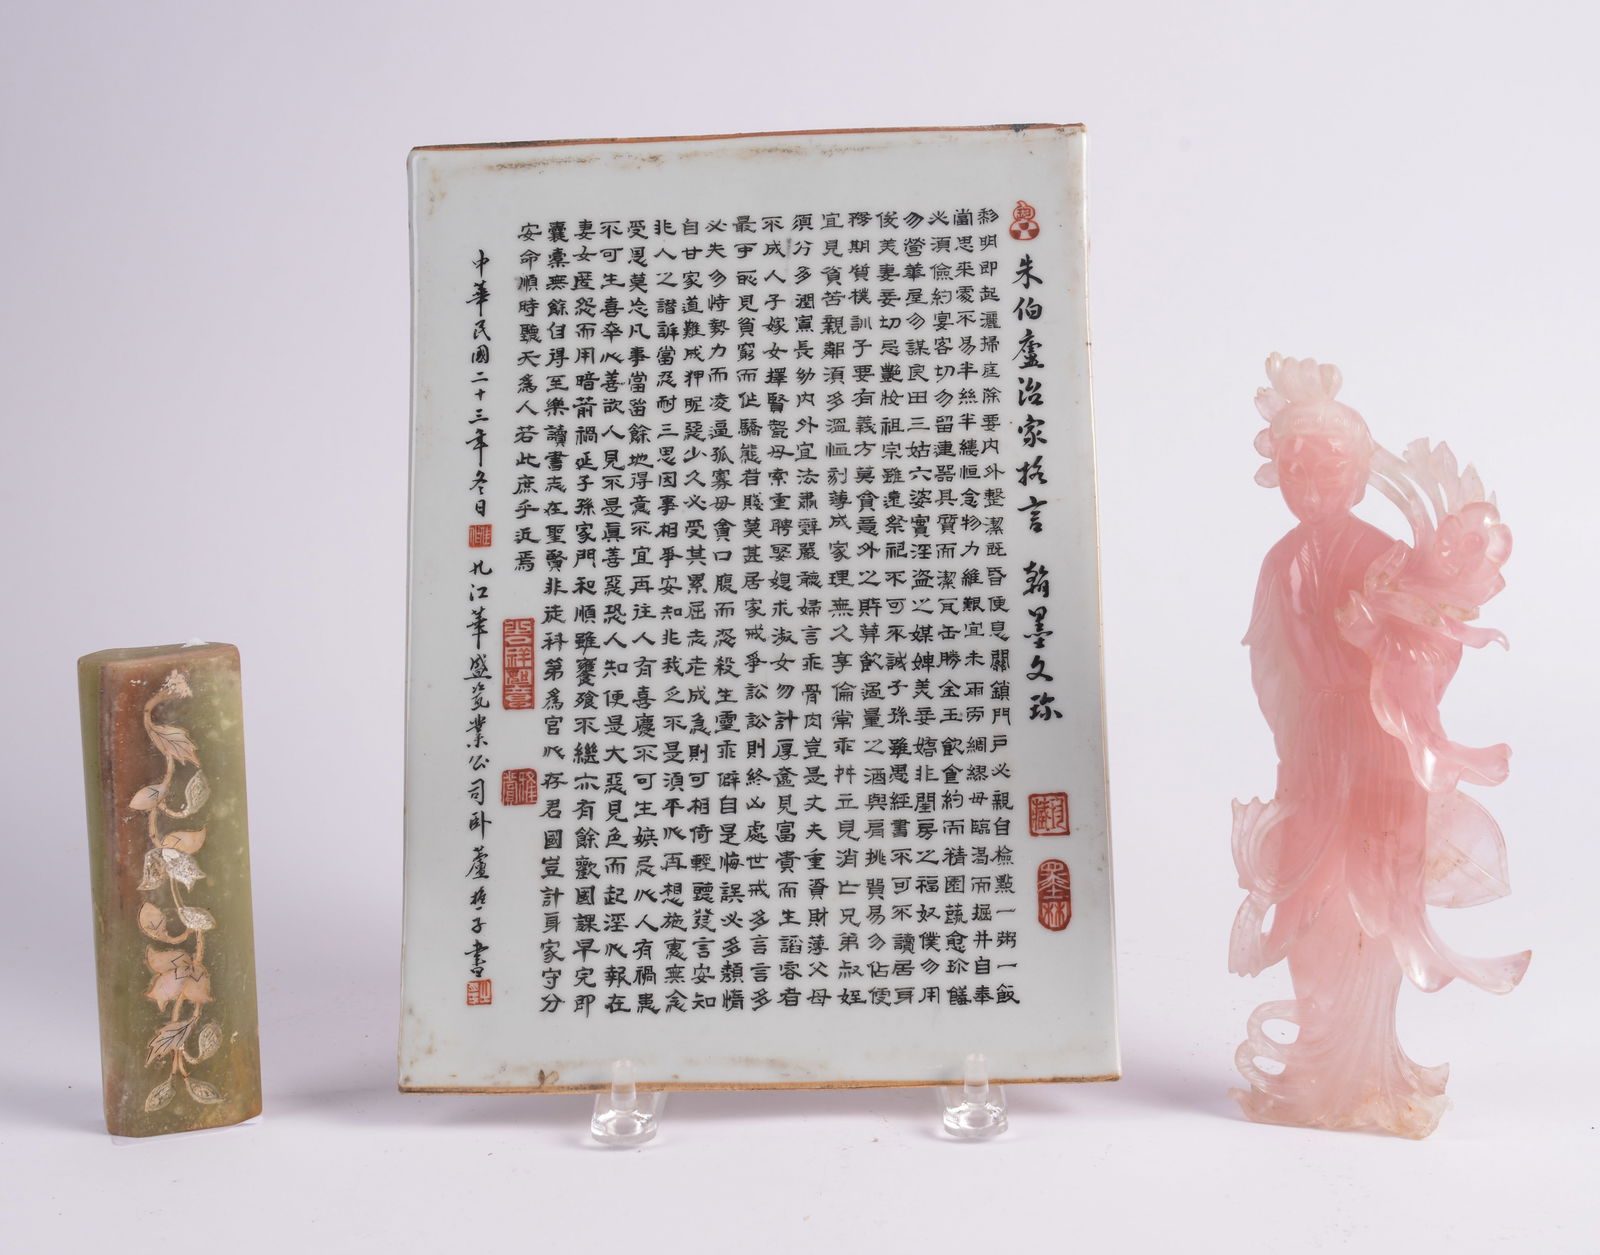 朱伯廬治家格言 翰墨文珍
黎明即起灑掃庭除要內外整潔既昏便息關鎖門戶必親自檢點一粥一飯
當思來處不易半絲半縷恒念物力維艱宜未雨而綢繆毋臨渴而掘井自奉
必須儉約宴客切勿留連器具質而潔瓦缶勝金玉飲食約而精園蔬愈珍饈
勿營華屋勿謀良田三姑六婆實淫盜之媒婢美妾嬌非閨房之福奴僕勿用
俊美妻妾切忌艷妝祖宗雖遠祭祀不可不誠子孫雖愚經書不可不讀居身
務期質樸訓子要有義方莫貪意外之財莫飲過量之酒與肩挑貿易勿佔便
宜見貧苦親鄰須多溫恤刻薄成家理無久享倫常乖舛立見消亡兄弟叔姪
須分多潤寡長幼內外宜法肅辭嚴聽婦言乖骨肉豈是丈夫重資財薄父母
不成人子嫁女擇賢壻毋索重聘娶媳求淑女勿計厚奩見富貴而生諂容者
最可恥見貧窮而作驕態者賤莫甚居家戒爭訟訟則終凶處世戒多言言多
必失勿恃勢力而凌逼孤寡毋貪口腹而恣殺生靈乖僻自是悔誤必多頹惰
自甘家道難成狎昵惡少久必受其累屈志老成急則可相倚輕聽發言安知
非人之譖訴當忍耐三思因事相爭安知非我之不是須平心再想施惠無念
受恩莫忘凡事當留餘地得意不宜再往人有喜慶不可生嫉忌心人有禍患
不可生喜幸心善欲人見不是真善惡恐人知便是大惡見色而起淫心報在
妻女匿怨而用暗箭禍延子孫家門和順雖饔飧不繼亦有餘歡國課早完即
囊橐無餘自得至樂讀書志在聖賢非徒科第為官心存君國豈計身家守分
安命順時聽天為人若此庶乎近焉
中華民國二十三年冬日
九江華盛瓷業公司卧蘆哲子書
墨林